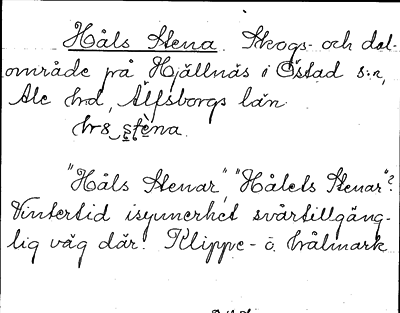 Håls Stena. Skogs- och dal-
område på Hjällnäs i Östad s:n,
Ale hd, Älfsborgs län.
"Håls Stenar", "Hålets Stenar"?
Vintertid isynnerhet svårtillgäng-
lig väg där. Klippe- o. hålmark